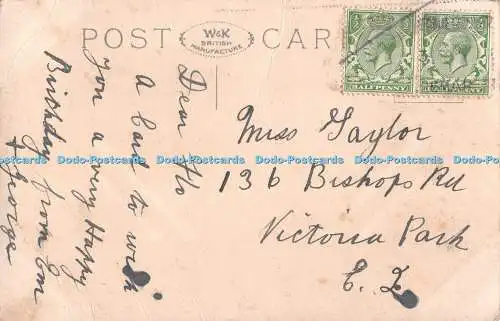 POST CARD
W&K
BRITISH
MANUFACTURE
HALFPENNY
HALFPENNY
Dear Flo
A Card to wish
you a very Happy
Birthday from Em
& George
Miss Taylor
136 Bishops Rd
Victoria Park
E. 2.
Dodo-Postcards Dodo-Postcards Dodo-Postcards Dodo-Postcards Dodo-Postcards Dodo-Postcards